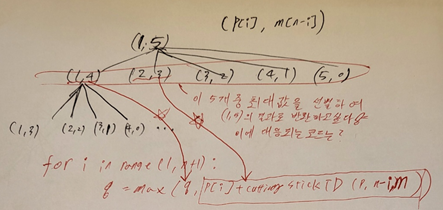 (P[i], m[n-i])
(1,5)
(1,4) (2,3) (3,2) (4,1) (5,0)
이 5개 중 최대값을 선별하여
(1,5)의 결과로 반환하고 싶다
이에 대응되는 코드는?
(1,3) (2,2) (3,1) (4,0) ...
for i in range(1, n+1):
q = max(q, P[i]+cuttingstickTD(P, n-i, m)